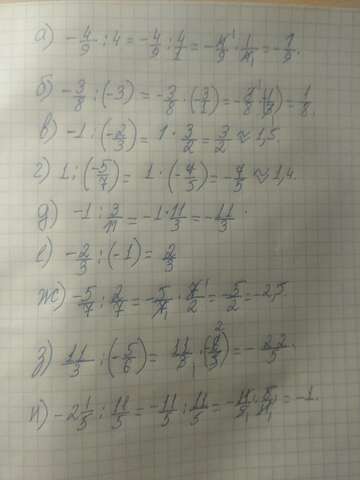 а) -4/9 : 4 = -4/9 : 4/1 = -4/9 · 1/4 = -1/9.
б) -3/8 : (-3) = -3/8 · (3/1) = -3/8 · 1/3 = 1/8.
в) -1 : (-2/3) = 1 · 3/2 = 3/2 ≈ 1,5
г) 1 : (-5/7) = 1 · (-7/5) = -7/5 ≈ 1,4.
д) -1 : 3/11 = -1 · 11/3 = -11/3.
е) -2/3 : (-1) = 2/3
ж) -5/7 : 2/7 = -5/7 · 7/2 = -5/2 = -2,5.
з) 11/3 : (-5/6) = 11/3 · (6/5) = -22/5.
и) -2 1/5 : 11/5 = -11/5 : 11/5 = -11/5 · 5/11 = -1.